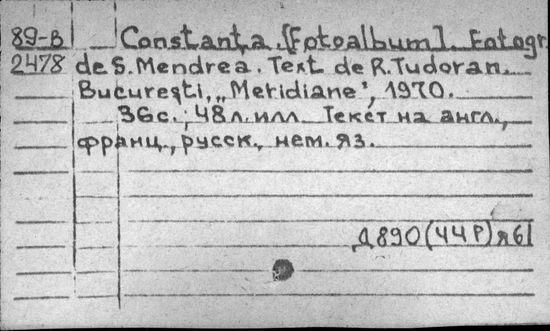 89-В Constanţa. [Fotoalbum]. Fotogr.
2478 de S. Mendrea. Text de R. Tudoran.
Bucureşti, „Meridiane”, 1970.
36с.; 48 л. илл. Текст на англ.,
франц., русск., нем. яз.
Д890(44Р)я61